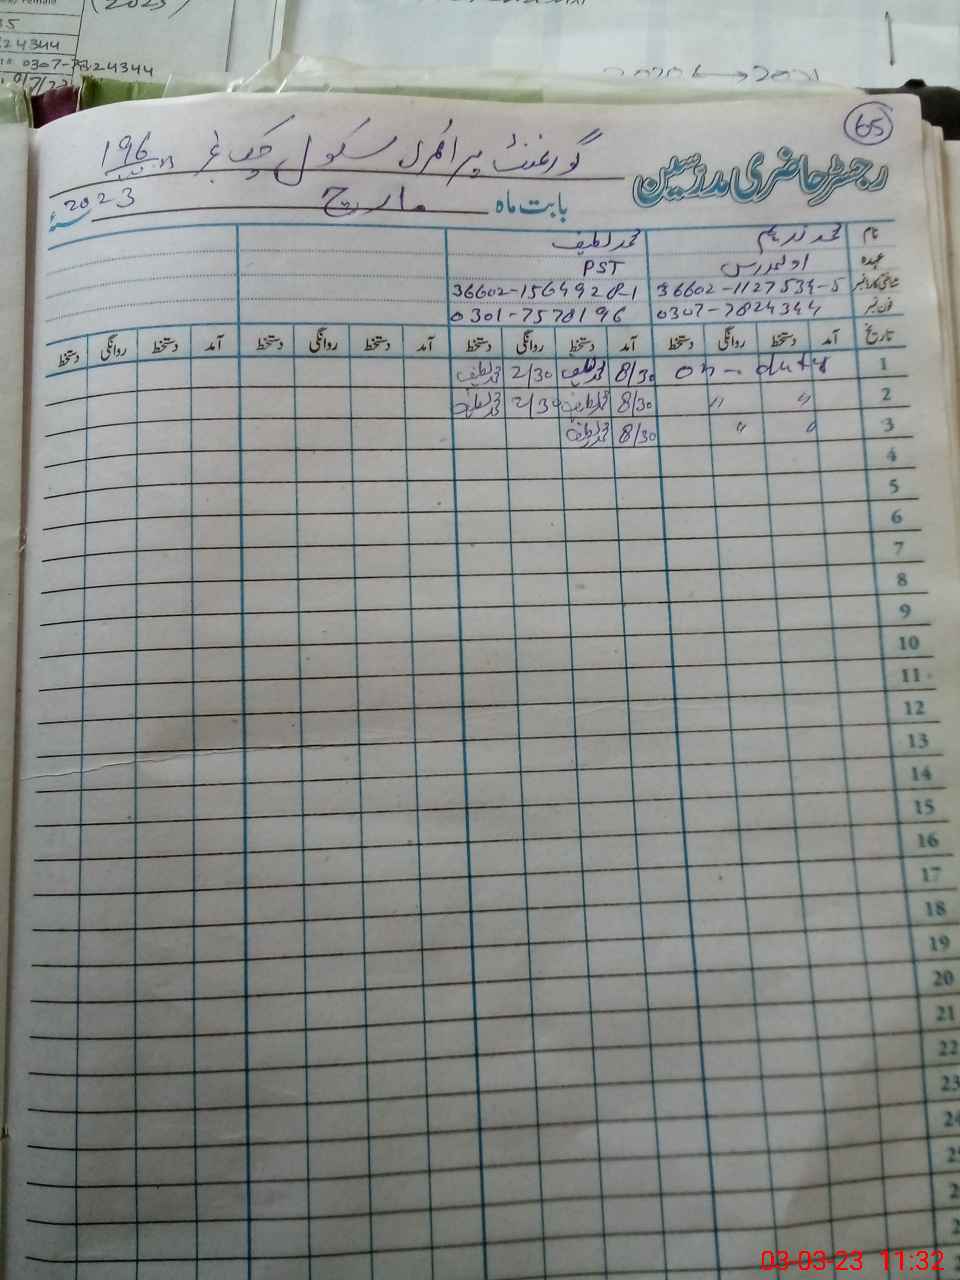 (2023)
24344
0307-7824344
65
رجسٹر حاضری مدرسین
گورنمنٹ پرائمری سکول چک نمبر 196
بابت ماہ مارچ 2023
نام محمد محمد لطیف
عہدہ اول مدرس PST
شناختی کارڈ نمبر 36602-1127534-5 36602-1564928-1
فون نمبر 0307-7824344 0301-7578196
تاریخ آمد دستخط روانگی دستخط آمد دستخط روانگی دستخط آمد دستخط روانگی دستخط آمد دستخط روانگی دستخط
1 on - duty 8/30 محمد لطیف 2/30 محمد لطیف
2 〃 〃 8/30 محمد لطیف 2/30 محمد لطیف
3 〃 〃 8/30 محمد لطیف
4
5
6
7
8
9
10
11
12
13
14
15
16
17
18
19
20
21
22
23
24
25
03-03-23 11:32